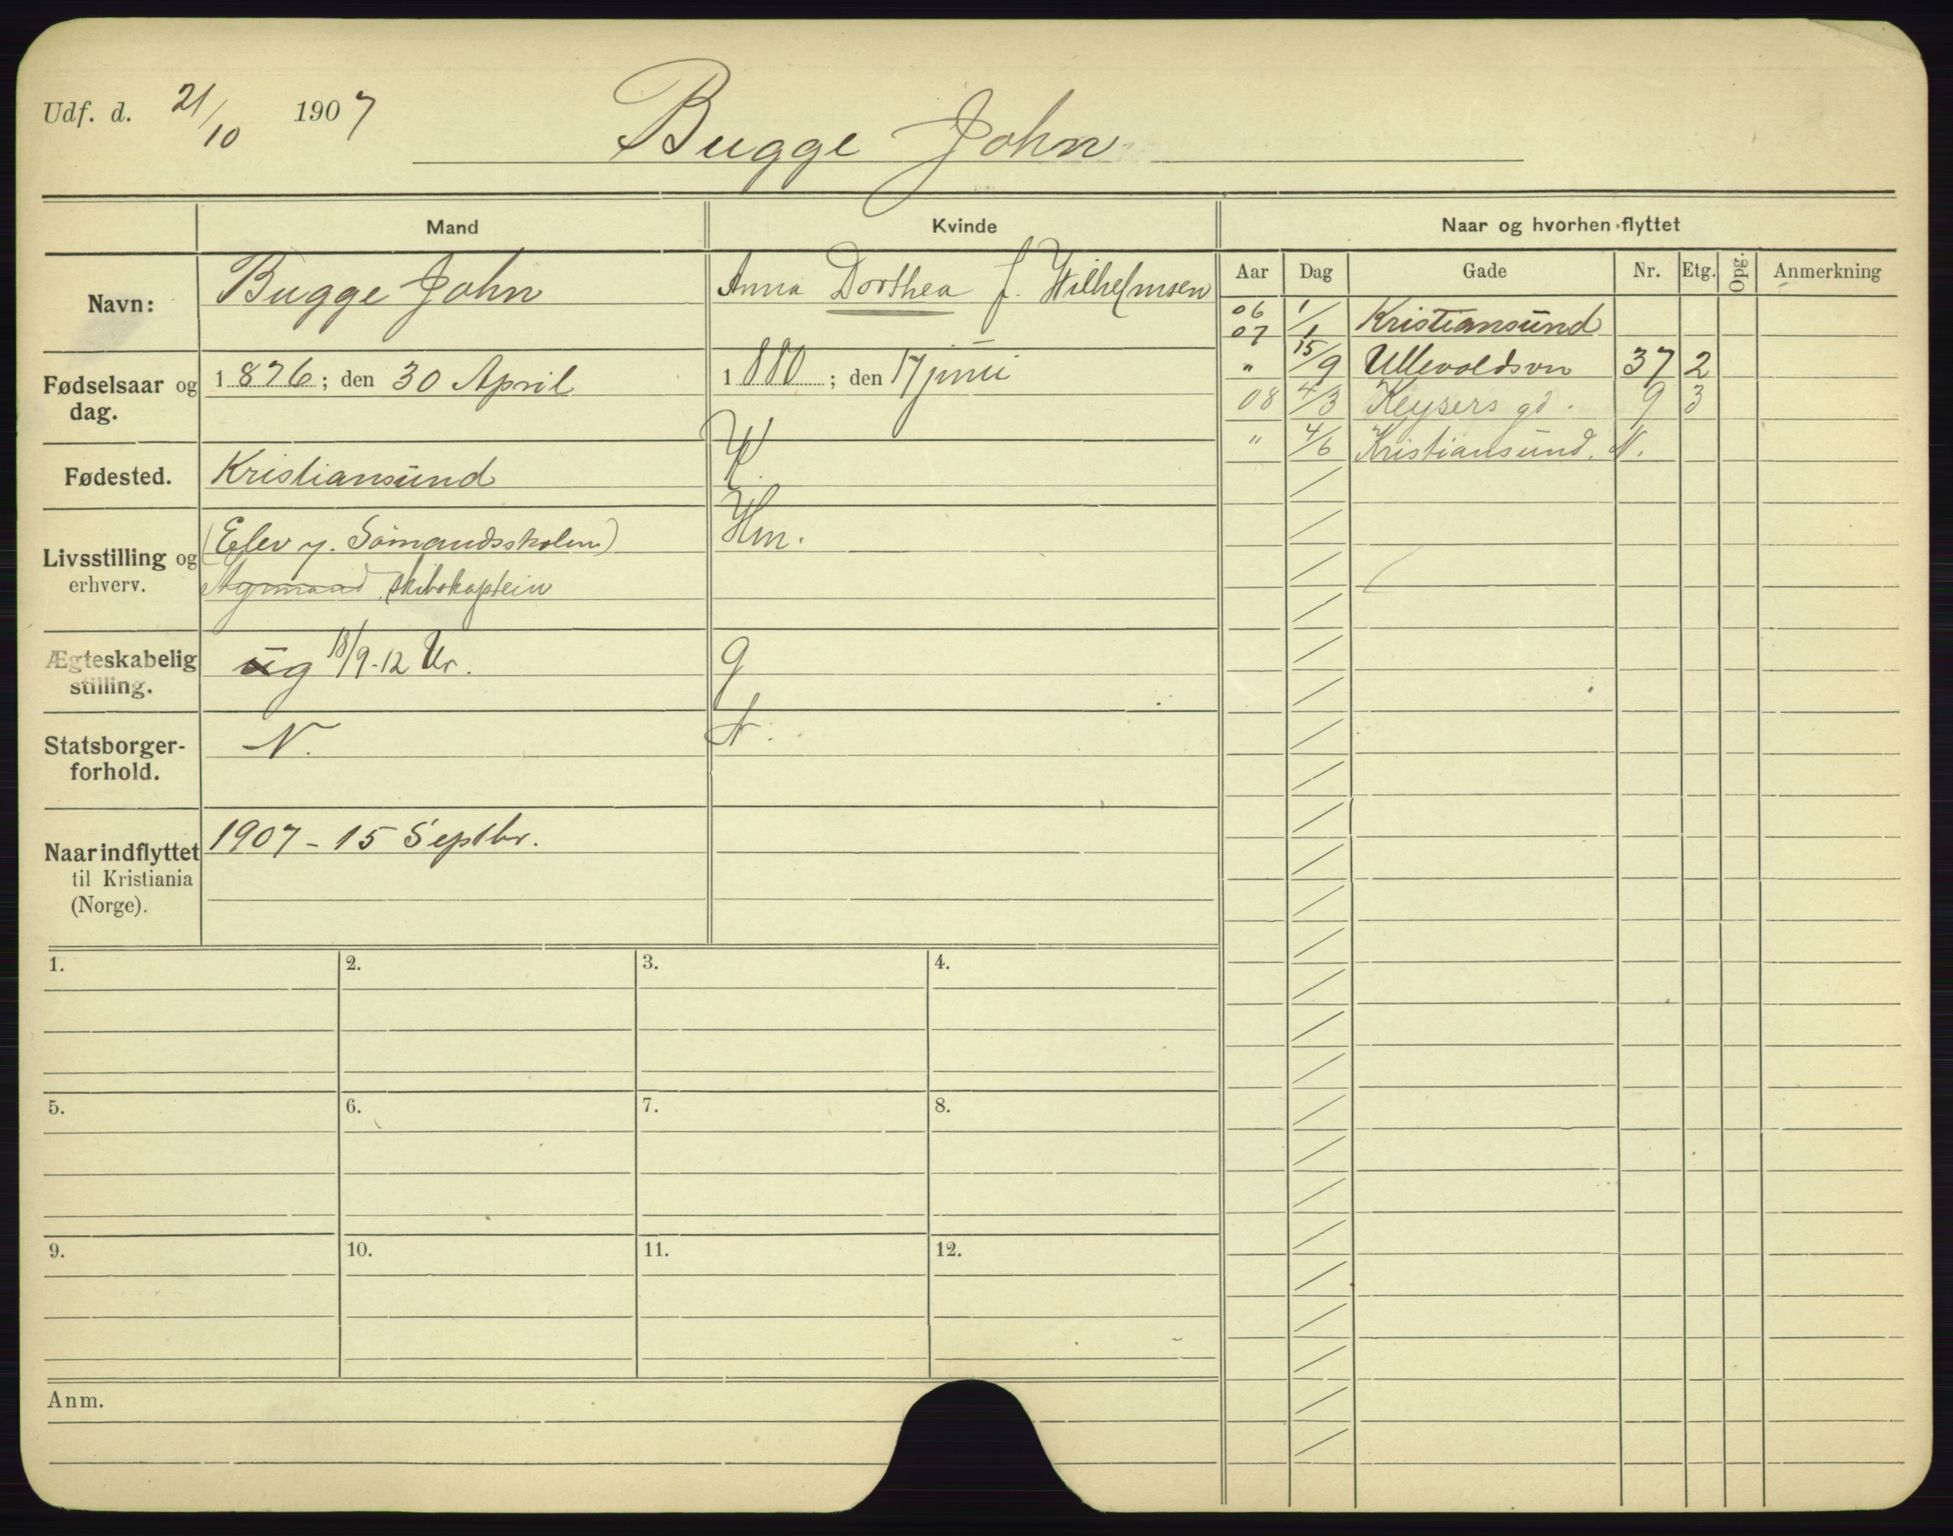 Udf. d. 21/10 1907
Bugge John
Mand
Kvinde
Naar og hvorhen flyttet
Navn:
Bugge John
Anna Dorthea f. Wilhelmsen
Fødselsaar og dag.
1876; den 30 April
1880; den 17 juni
Fødested.
Kristiansund
K.
Livsstilling og erhverv.
(Elev v. Sømandsskolen)
skibskaptein
Hm.
Ægteskabelig stilling.
ug 18/9-12 Ur.
g
Statsborgerforhold.
N.
N.
Naar indflyttet til Kristiania (Norge).
1907 - 15 Septbr.
Aar Dag Gade Nr. Etg. Opg. Anmerkning
06 07 1/1 Kristiansund
" 15/9 Ullevoldsvn 37 2
08 4/3 Keysers gd. 9 3
" 4/6 Kristiansund. N.
1. 2. 3. 4.
5. 6. 7. 8.
9. 10. 11. 12.
Anm.